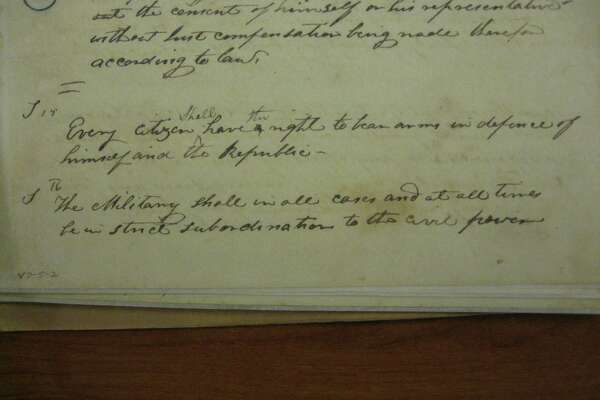 out the consent of himself or his representative
without Just compensation being made therefor
according to law,
S 15
Shell the
Every citizen have a right to bear arms in defence of
himself and the Republic –
S 16 The Military shall in all cases and at all times
be in strict subordination to the civil power